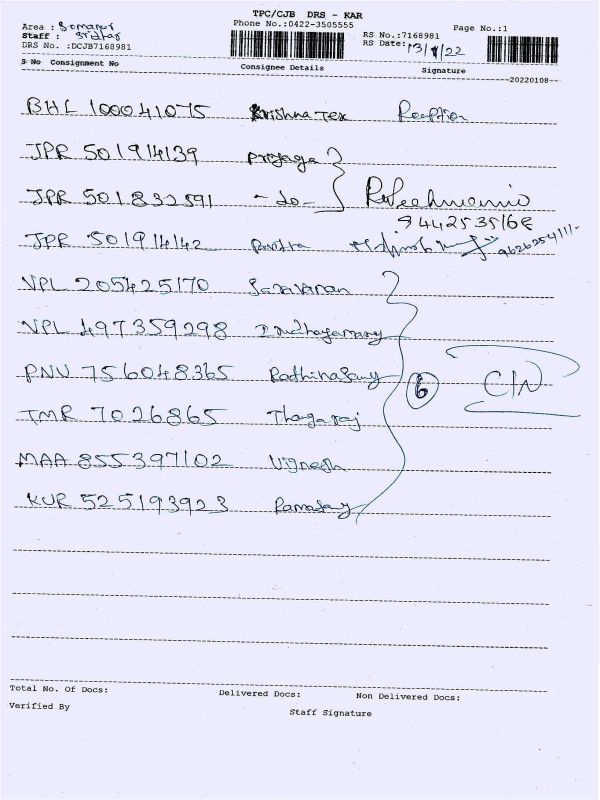 TPC/CJB DRS - KAR
Area : Somanur Phone No.:0422-3505555 RS No.:7168981 Page No.:1
Staff : Sridhar RS Date: 13/1/22
DRS No. :DCJB7168981
S No Consignment No Consignee Details Signature
20220108
BHL 100041075 Krishna Tex Reception
JPR 501914139
JPR 501832591 -do-
9442535168
JPR 501914142 Pavitra
VPL 205425170 Saravanan
VPL 497359298
PNU 756048365 Rathinasamy 6 C/N
TMR 7026865 Thagaraj
MAA 855397102 Vignesh
KUR 525193923 Ramasamy
Total No. Of Docs: Delivered Docs: Non Delivered Docs:
Verified By Staff Signature